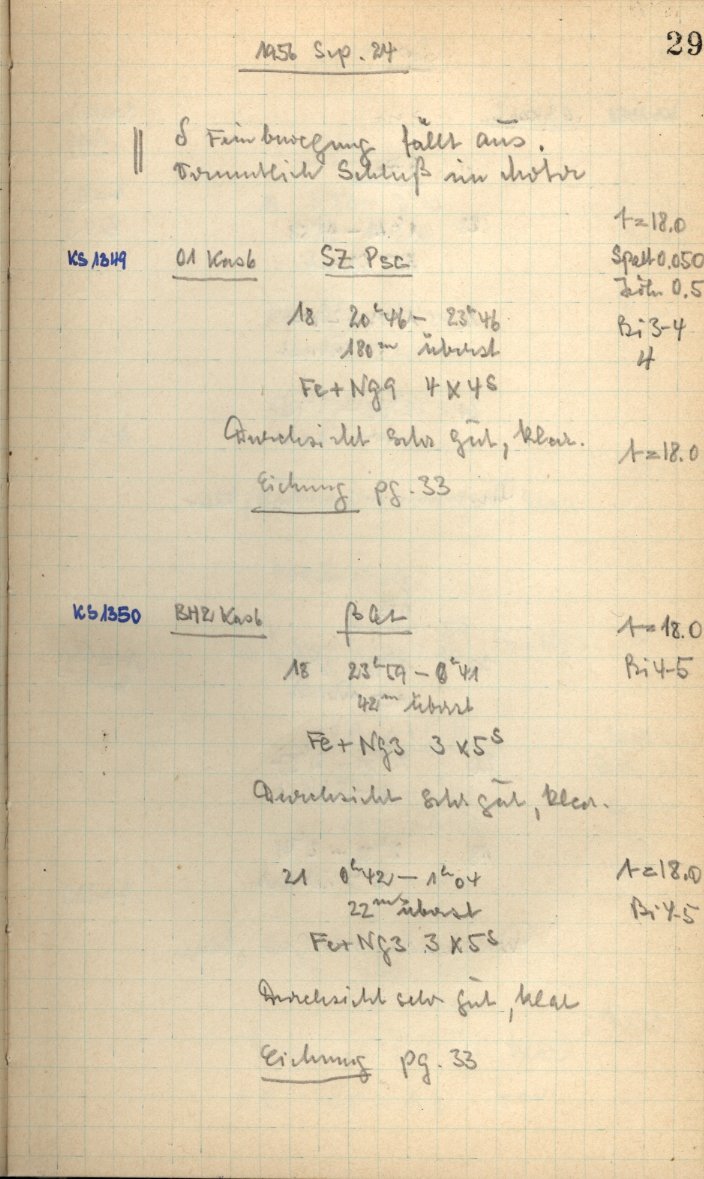 29
1956 Sep. 24
δ Feinbewegung fällt aus.
Vermutlich Schluß im Motor
t=18.0
KS 1349 01 Kasb SZ Psc Spalt 0.050
0.5
18 20ʰ46 – 23ʰ46 Bi 3-4
180ᵐ überst 4
Fe+Ng9 4x4ˢ
Durchsicht sehr gut, klar.
t=18.0
Eichung pg. 33
KS1350 Kasb β t=18.0
18 23ʰ59 – 0ʰ41 Bi 4-5
42ᵐ überst
Fe+Ng3 3x5ˢ
Durchsicht sehr gut, klar.
21 0ʰ42 – 1ʰ04 t=18.0
22ᵐ überst Bi 4-5
Fe+Ng3 3x5ˢ
Durchsicht sehr gut, klar
Eichung pg. 33